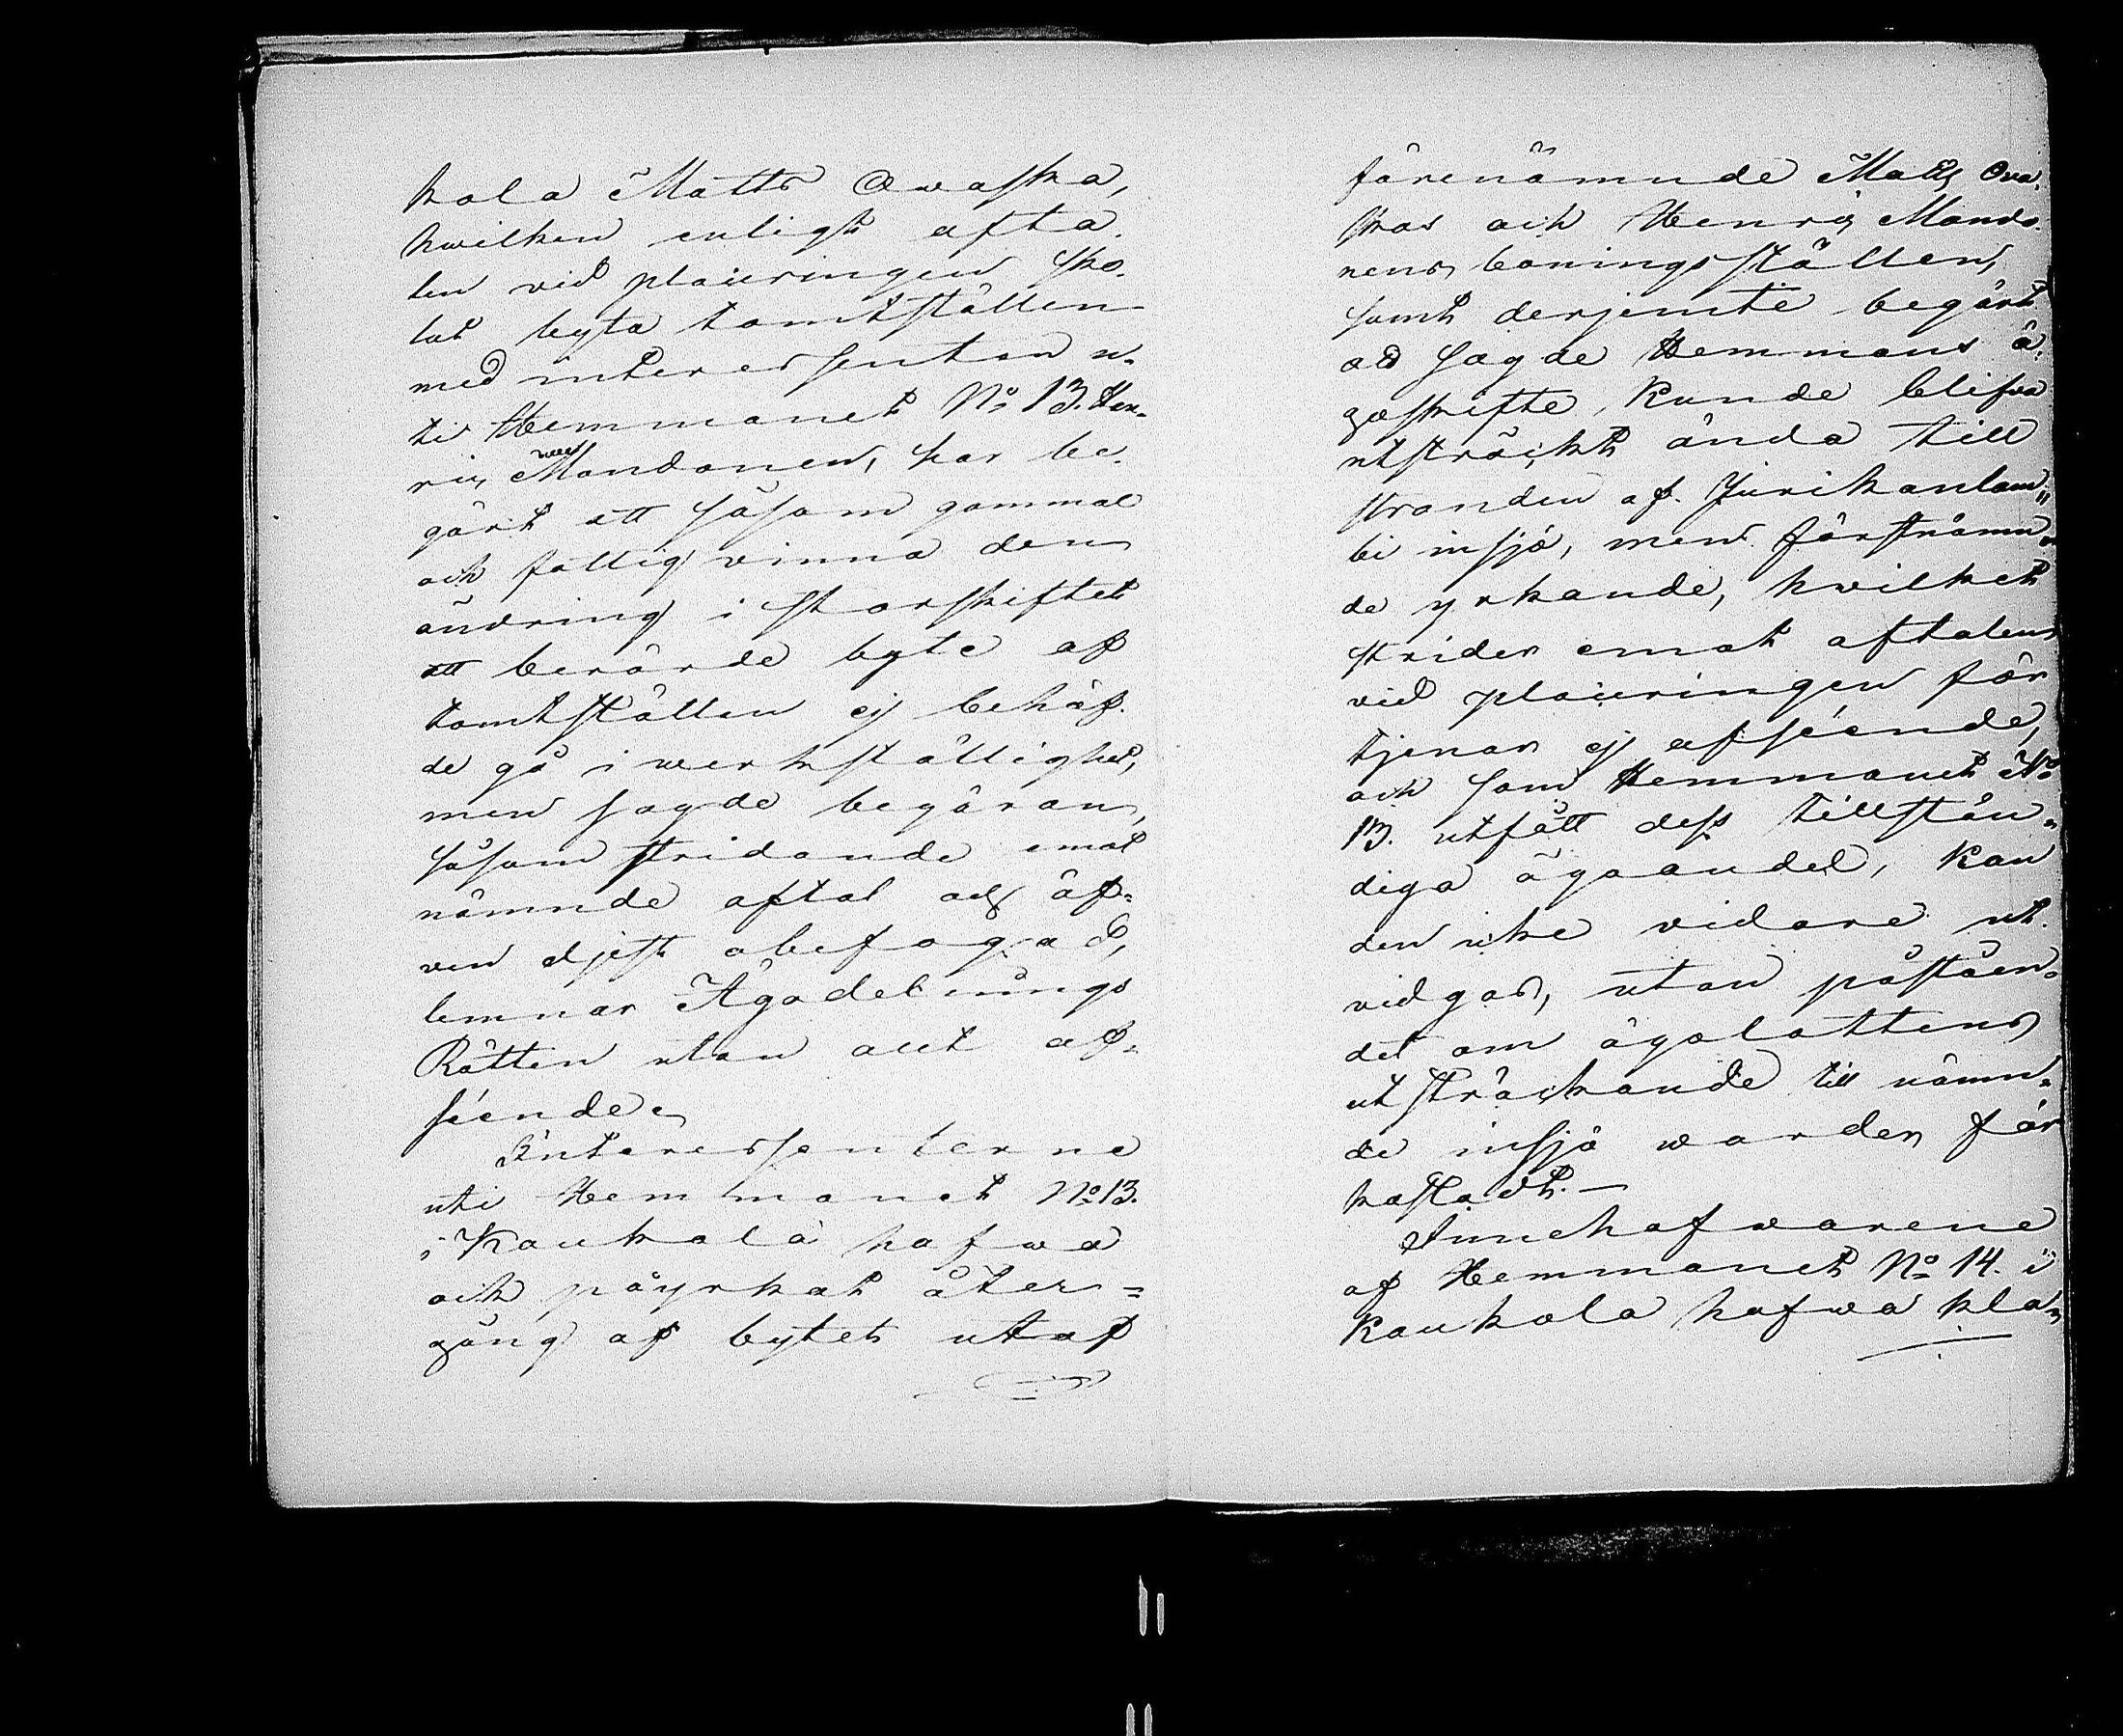 kola Matts Owaska,
hwilken enligt afta-
len vid placeringen sko-
lat byta tomtställen
med interessenten u-
ti Hemmanet No 13. Hen-
ric Mandonen, har be-
gärt att såsom gammal
och fattig vinna den
ändring i storskiftet
att berörde byte af
tomtställen ej behöf-
de gå i werkställighet,
men sagde begäran,
såsom stridande emot
nämnde aftal och äf-
ven eljest obefogad,
lemnar Ägodelnings
Rätten utan allt af-
séende.
Interessenterne
uti Hemmanet No 13.
i Kaukola hafwa
och påyrkat åter-
gång af bytet utaf
förenämnde Matts Ova-
skas och Henric Mando-
nens boningsställen,
samt derjemte begärt
att sagde Hemmans ä-
goskifte, kunde blifva
utsträckt ända till
stranden af Jurikanlam-
bi insjö, men förstnämn-
de yrkande, hwilket
strider emot aftalen
vid placeringen för
tjenar ej afséende,
och som Hemmanet No
13. utfått dess tillstän-
diga ägoandel, kan
den icke vidare ut-
vidgas, utan påståen-
det om ägolottens
utsträckande till nämn-
de insjö warder för
kastadt.—
Innehafwarene
af Hemmanet No 14. i
Kaukola hafwa kla-